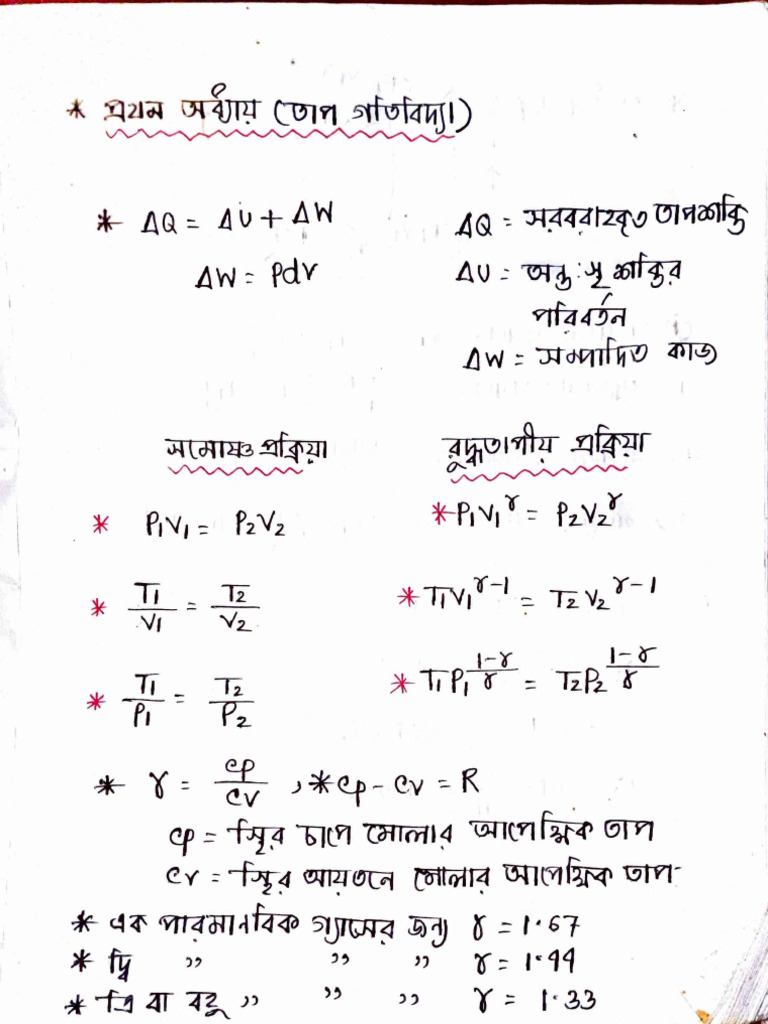 * প্রথম অধ্যায় (তাপ গতিবিদ্যা)
* ΔQ = ΔU + ΔW
ΔW = Pdv
ΔQ = সরবরাহকৃত তাপশক্তি
ΔU = অন্তঃস্থ শক্তির
পরিবর্তন
ΔW = সম্পাদিত কাজ
সমোষ্ণ প্রক্রিয়া
* P₁V₁ = P₂V₂
* T₁/V₁ = T₂/V₂
* T₁/P₁ = T₂/P₂
রুদ্ধতাপীয় প্রক্রিয়া
* P₁V₁^γ = P₂V₂^γ
* T₁V₁^(γ-1) = T₂V₂^(γ-1)
* T₁P₁^((1-γ)/γ) = T₂P₂^((1-γ)/γ)
* γ = Cp/Cv , * Cp - Cv = R
Cp = স্থির চাপে মোলার আপেক্ষিক তাপ
Cv = স্থির আয়তনে মোলার আপেক্ষিক তাপ
* এক পারমানবিক গ্যাসের জন্য γ = 1.67
* দ্বি ,, ,, ,, γ = 1.44
* ত্রি বা বহু ,, ,, ,, γ = 1.33